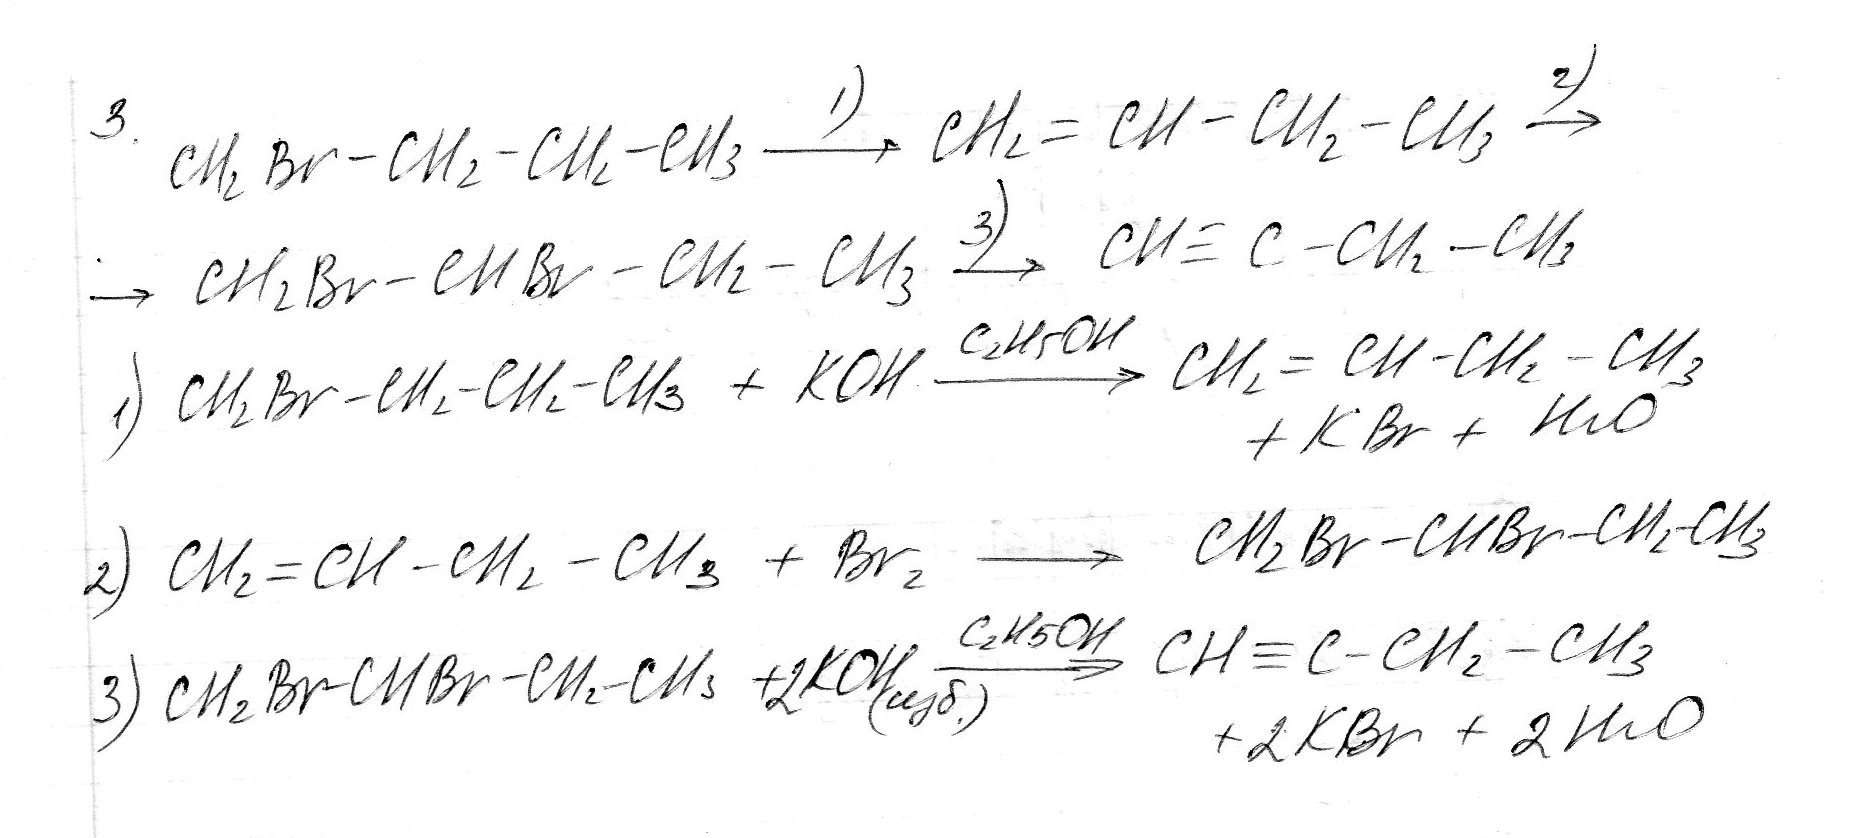 3. CH₂Br-CH₂-CH₂-CH₃ 1)→ CH₂=CH-CH₂-CH₃ 2)→
→ CH₂Br-CHBr-CH₂-CH₃ 3)→ CH≡C-CH₂-CH₃
1) CH₂Br-CH₂-CH₂-CH₃ + KOH C₂H₅OH→ CH₂=CH-CH₂-CH₃
+ KBr + H₂O
2) CH₂=CH-CH₂-CH₃ + Br₂ → CH₂Br-CHBr-CH₂-CH₃
3) CH₂Br-CHBr-CH₂-CH₃ +2KOH (изб.) C₂H₅OH→ CH≡C-CH₂-CH₃
+2KBr + 2H₂O